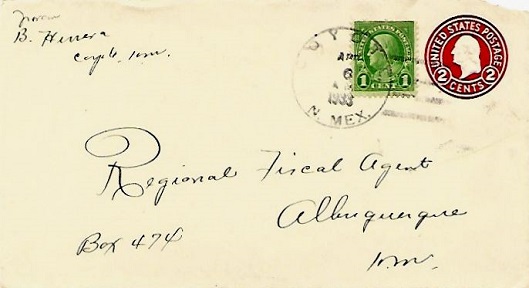 From
B. Herrera
Coyote, N.M.
COYOTE
APR
6
1933
N. MEX.
UNITED STATES POSTAGE
1 CENT 1
UNITED STATES POSTAGE
2 CENTS 2
Regional Fiscal Agent
Albuquerque
Box 474
N.M.